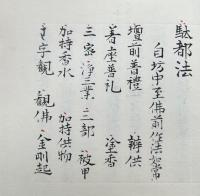 駄都法
自坊中至佛前作法如常
壇前普禮 辨供
着座普礼 塗香
三密 浄三業 三部 被甲
加持香水 加持供物
字觀 觀佛 金剛起